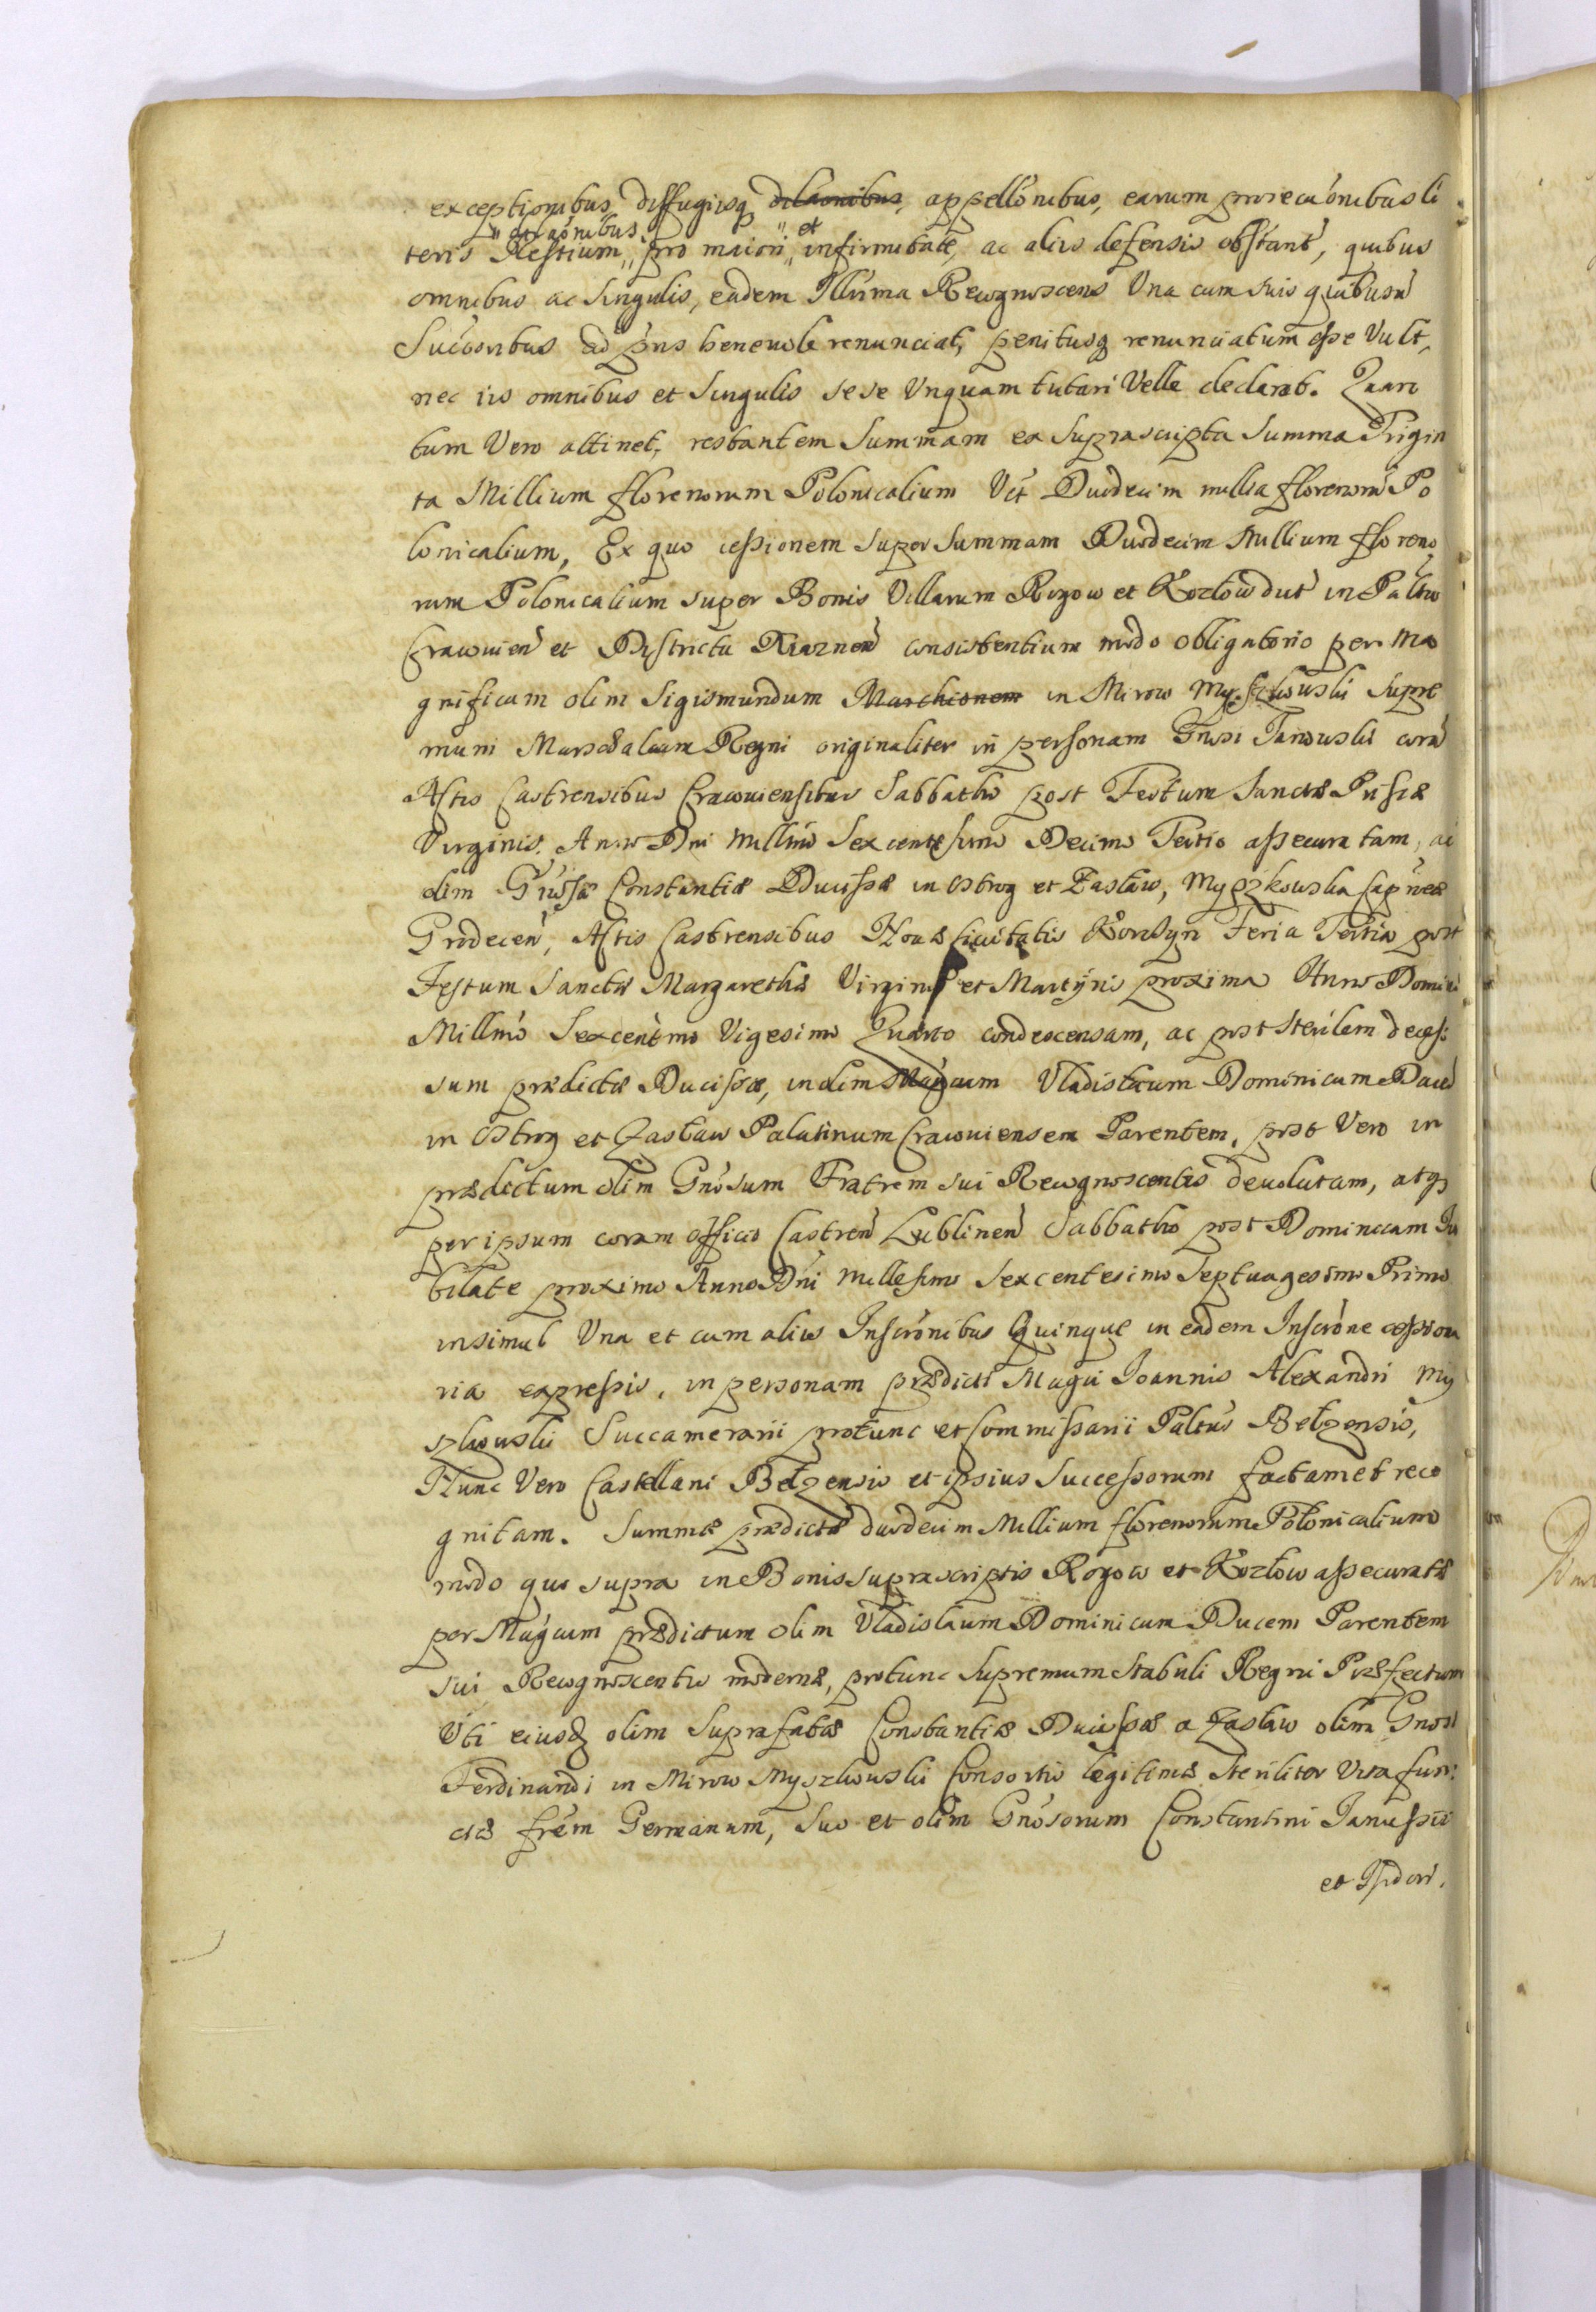 exceptionibus diffugijsq dilaõnibus, appellõnibus, earum prosecuõnibus li
dilaõnibus et
teris Restium, pro maiori infirmitate, ac alijs defensis obstant̃, quibus
omnibus ac singulis, eadem Illũma Recognoscens Una cum suis quibusũ
Succõribus ad p̃ns beneuole renunciat, penitusq renunciatum esse Vult,
nec iis omnibus et singulis sese Unquam tutari Velle declarat. Quan
tum Vero attinet, restantem Summam ex suprascripta Summa Trigin
ta Millium florenorum Polonicalium Uct̃ Duodecim millia florenorũ Po
lonicalium, Ex quo cessionem super summam Duodecim Millium floreno
rum Polonicalium super Bonis Villarum Rozow et Kozłow dict̃ in Paltũ
Cracouien̄ et Districtu Xiaznen̄ consistentium modo obligatorio per Ma
gnificum olim Sigismundum Marchionem in Mirow Myszkowski Supre
mum Marschalcum Regni originaliter in personam Gñosi Tarnowski corã
Actis Castrensibus Cracouiensibus Sabbatho post Festum Sanctæ Prisiæ
Virginis. Anno Dni millmo Sexcentesimo Decimo Tertio assecuratam, ac
olim Gñosæ Constantiæ Ducissæ in Ostrog et Zasław, Myszkowska Capñea
Grodecen̄, Actis Castrensibus Nouæ Ciuitatis Korczyn Feria Tertia post
Festum Sanctæ Margarethæ Virginis et Martyris proxima Anno Domini
Millmo Sexcentmo Vigesimo Quarto condescensam, ac post sterilem deces
sum prædictæ Ducissæ, in olim Mag̃cum Vladislaum Dominicum Ducẽ
in Ostrog et Zasław Palatinum Cracouiensem Parentem, post Vero in
prædictum olim Gñosum Fratrem sui Recognoscentis deuolutam, atq
per ipsum coram officio Castren̄ Lublinen̄ Sabbatho post Dominicam Iu
bilate proximo Anno Dñi millesimo Sexcentesimo Septuagesimo Primo
insimul Una et cum alijs Inscrõnibus Quinque in eadem Inscrõne cessiona
ria expressis, in personam prædicti Mag̃ci Joannis Alexandri My
szkowski Succamerarii protunc et Commissarii Paltũs Bełzensis,
Nunc Vero Castellani Bełzensis et ipsius Successorum factam et reco
gnitam. Summæ prædictæ duodecim Millium florenorum Polonicalium
modo quo supra in Bonis suprascriptis Rozow et Kozłow assecuratæ
per Mag̃cum prædictum olim Vladislaum Dominicum Ducem Parentem
sui Recognoscentis modernæ, protunc Supremum Stabuli Regni Præfectum
Uti eiusq olim suprafatæ Constantiæ Ducissæ a Zasław olim Gñosi
Ferdinandi in Mirow Myszkowski Consortis legitimæ steriliter Vita fun
ctæ frẽm Germanum, suo et olim Gñosorum Constantini Janussii
et Isidori.